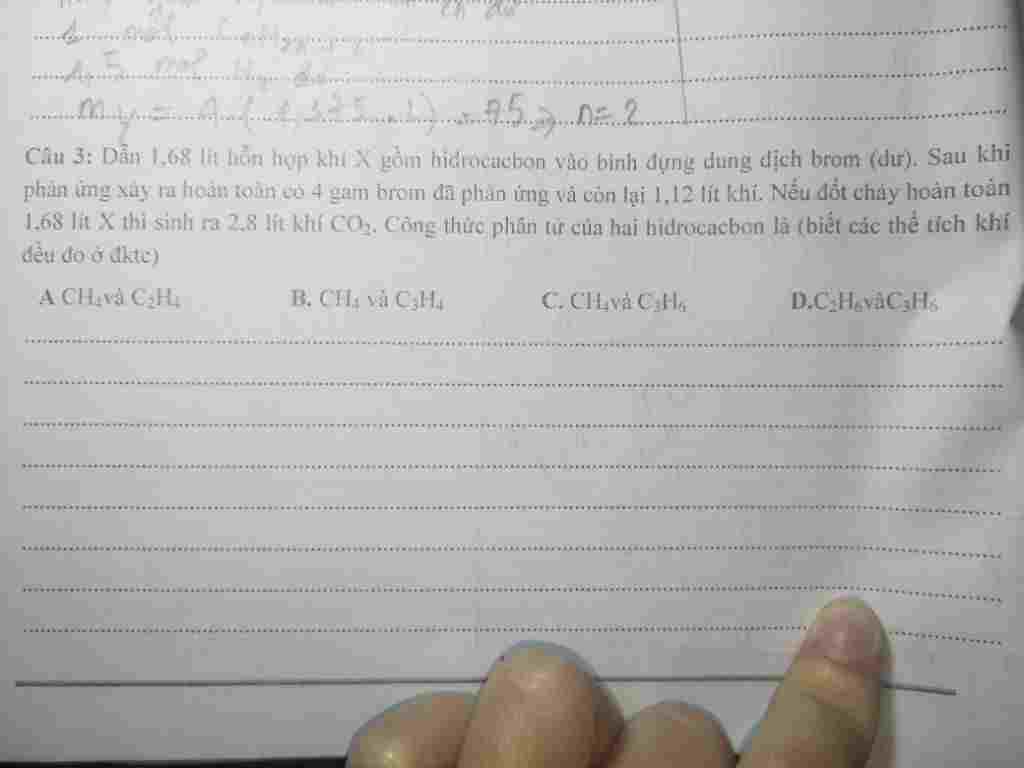 1 mol
1,5 mol H2 dư
my = n = 2
Câu 3: Dẫn 1,68 lít hỗn hợp khí X gồm hidrocacbon vào bình đựng dung dịch brom (dư). Sau khi
phản ứng xảy ra hoàn toàn có 4 gam brom đã phản ứng và còn lại 1,12 lít khí. Nếu đốt cháy hoàn toàn
1,68 lít X thì sinh ra 2,8 lít khí CO₂. Công thức phân tử của hai hidrocacbon là (biết các thể tích khí
đều đo ở đktc)
A CH₄và C₂H₄ B. CH₄ và C₃H₄ C. CH₄và C₃H₆ D.C₂H₆vàC₃H₆